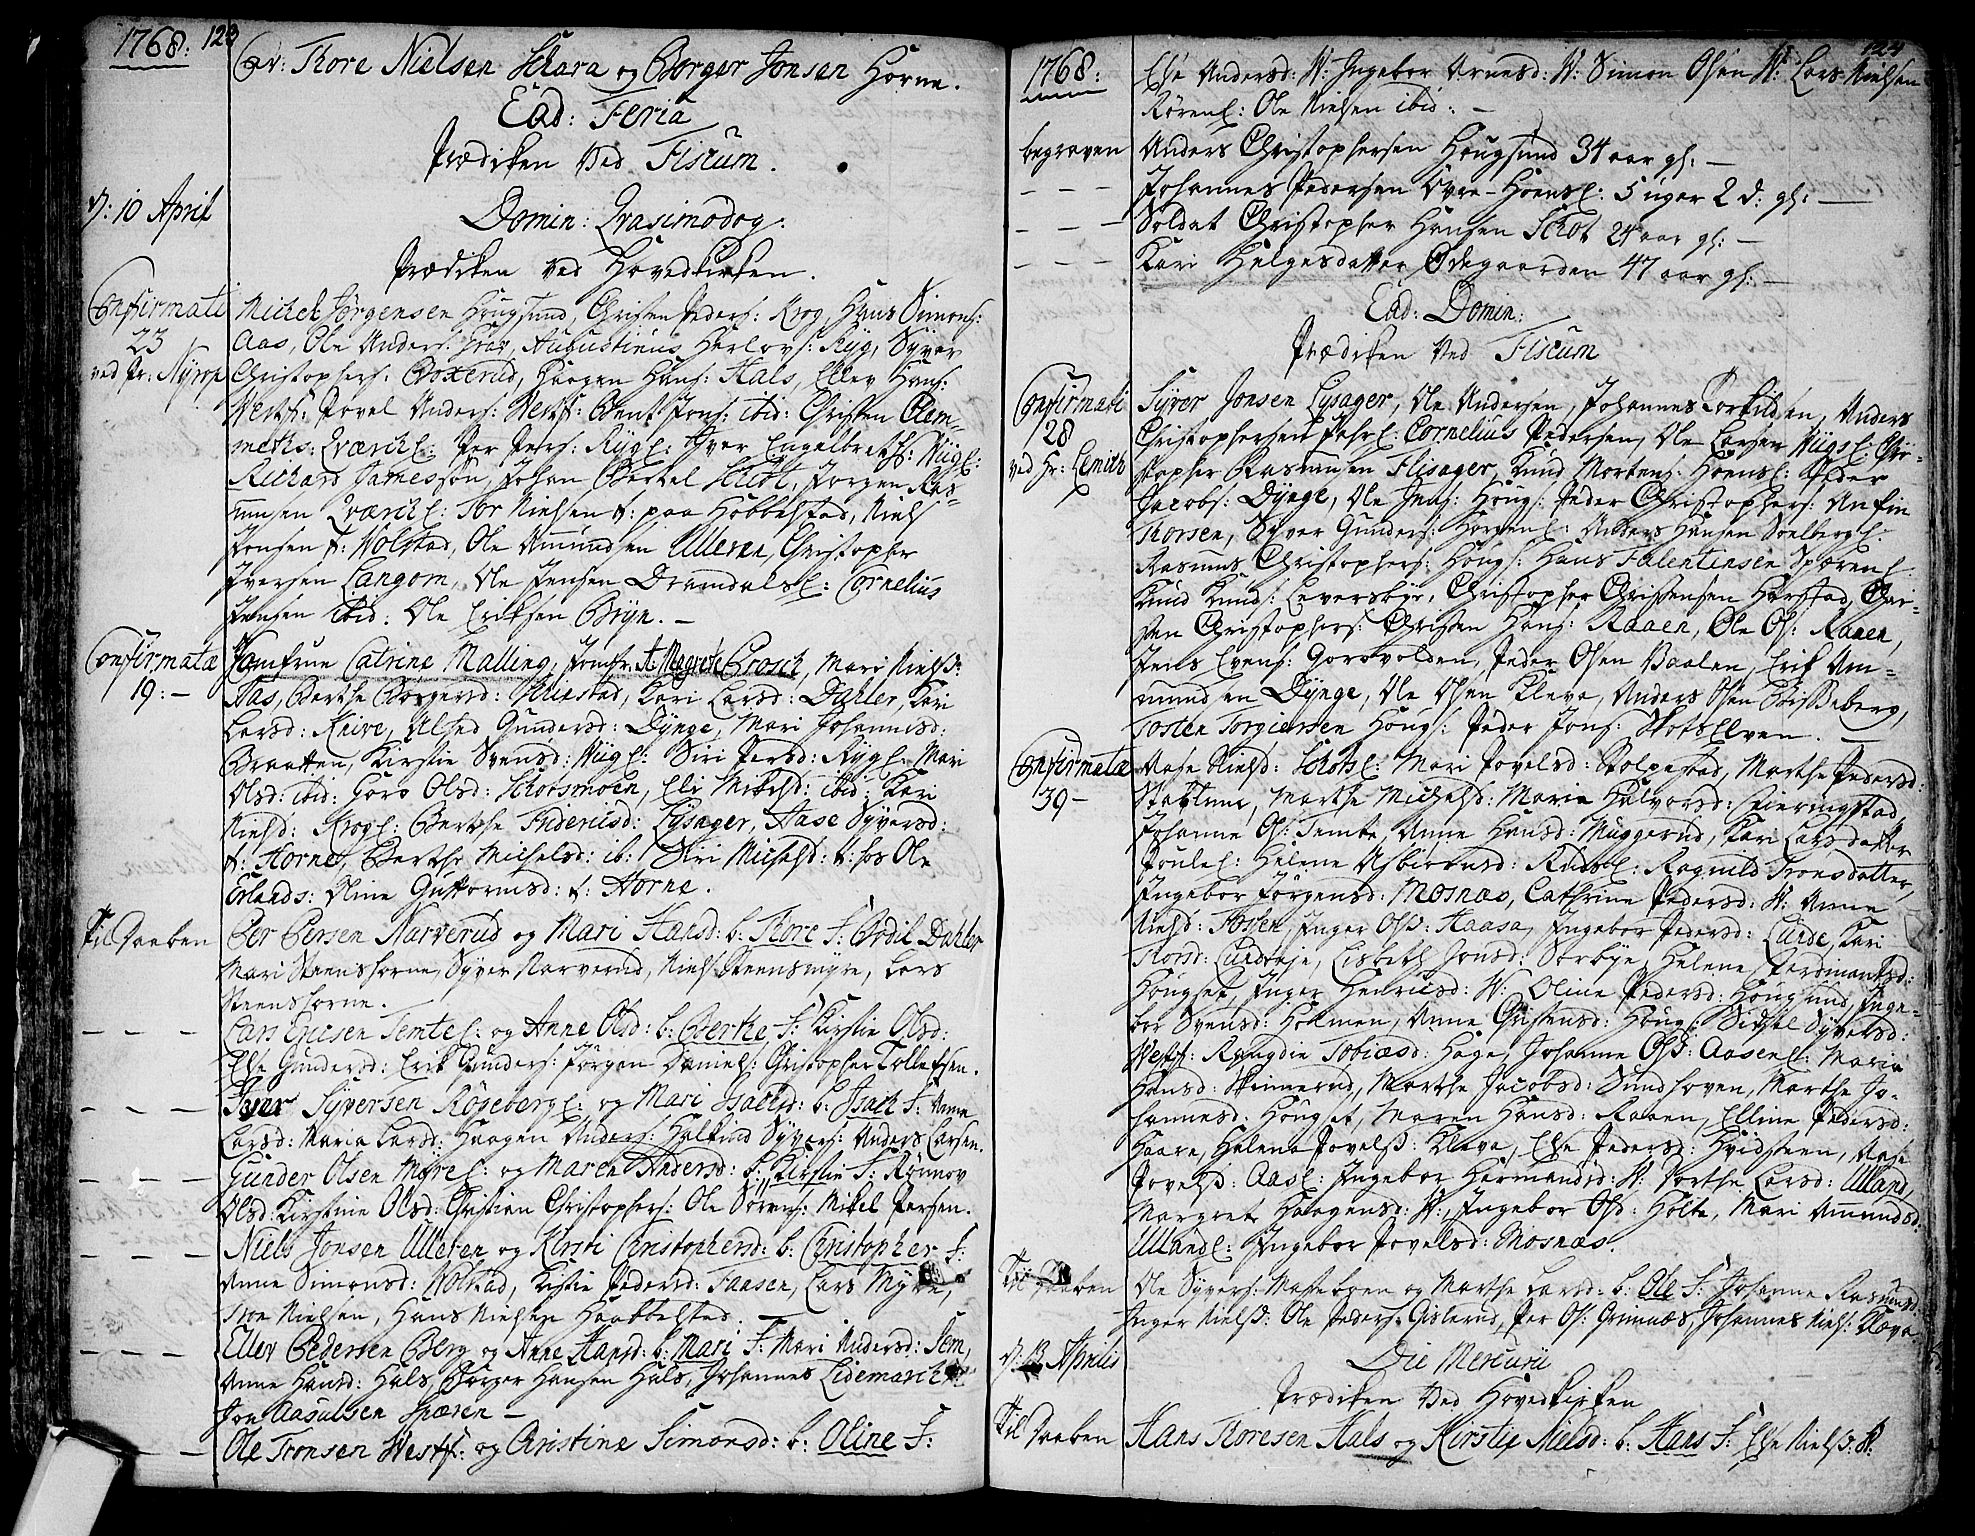 1768: 123
Cav: Thore Nielsen Schara og Børger Jonsen Horne.
Ead: Feria
Prædiken ved Fiscum.
D: 10 April
Domin: Qvasimodog:
Prædiken ved Hovedkirken.
Confirmati 23 ved Hr: Nyrop
Michel Jørgensen Hougsund, Christen Peders: Krog, Hans Simons:
Aas, Ole Anders: Augustinus Herlovs: Ryg, Syver
Christophers: Boxerud, Haagen Hans: Hals, Ellev Hans:
Vestf: Povel Anders: Vestf: Bent Jons: ibid: Christen Clem-
meths: Qværchl: Per Pers: Rygl: Iver Engelbretts: Wiigl:
Richard Jamesson, Johan Bertel Schitt, Jørgen Ras-
mussen Qværchl: Tor Nielsen t: paa Hobbelstad, Niels
Jonsen t: Wolstad, Ole Amundsen Ulleren, Christopher
Iversen Langom, Ole Jensen Dramdalsl: Cornelius
Jensen ibid: Ole Eriksen Bryn. –
Confirmatæ 19: –
Jomfrue Catrine Malling, Jomfr: A: Magrete Brosch, Mari Nielsd:
Aas, Berthe Børgersd: Schiestad, Kari Larsd: Dahler, Kari
Larsd: Knive, Alhed Gundersd: Dynge, Mari Johannisd:
Braatten, Kirstie Svensd: Wiigl: Siri Persd: Rygl: Mari
Olsd: ibid: Goro Olsd: Schotsmoen, Eli Mikelsd: ibid: Kari
Nielsd: Krogl: Berthe Fridericsd: Lysager, Aase Syversd:
t: Horne, Berthe Michelsd: ib: Siri Michelsd: t: hos Ole
Erlands: Oline Guttormsd: t: Horne.
Til Daaben
Per Persen Narverud og Mari Hansd: b: Thore F: Bodil Dahler
Mari Steenshorne, Syver Narverud, Niels Steensmyre, Lars
Steenshorne.
– – – Lars Ericsen Temtel: og Anne Olsd: b: Berthe F: Kirstie Olsd:
Else Gundersd: Erik Gunders: Jørgen Daniels: Christopher Tollefsen.
– – – Iver Syversen Røgebergl: og Mari Isachsd: b: Isach F: Anne
Larsd: Maria Larsd: Haagen Anders: Halvind Syvers: Anders Larsen.
– – – Gunder Olsen Myrel: og Maren Andersd: b: Kirstin F: Rønnov
Olsd: Kirstine Olsd: Christian Christophers: Ole Sørens: Mikel Persen.
– – – Niels Jonsen Ulleren og Kirsti Christophersd: b: Christopher F:
Anne Simonsd: Wolstad, Kirstie Pedersd: Faasen, Lars Myre,
Iver Nielsen, Hans Nielsen Haabbelstad.
– – – Ellev Pedersen Berg og Anne Hansd: b: Mari F: Mari Andersd: Sem,
Anne Hansd: Hals, Børger Hansen Hals, Johannes Lidemarch
Jon Aasulsen Spæren –
– – – Ole Tronsen Vestf: og Christine Simonsd: b: Oline F:
1768: 124
Else Andersd: N: Ingebor Arnesd: N: Simon Olsen N: Lars Nielsen
Rørenl: Ole Nielsen ibid: –
begraven Anders Christophersen Hougsund 34 aar gl: –
– – – Johannes Pedersen Øvre-Hoensl: 5 uger 2 d: gl: –
– – – Soldat Christopher Hansen Schot 24 aar gl: –
– – – Kari Helgesdatter Ødegaarden 47 aar gl: –
Ead: Domin:
Prædiken ved Fiscum
Confirmati 28 ved Hr: Lemich
Syver Jonsen Lysager, Ole Andersen, Johannes Torkildsen, Anders
Christophersen Cornelius Pedersen, Ole Larsen Wiigsl: Chri-
stopher Rasmusen Flisager, Knud Mortens: Hoensl: Peder
Jacobs: Dynge, Ole Jens: Houg: Peder Christophers: Anfin
Thorsen, Syver Gunders: Horgenl: Anders Hansen Soelbergl:
Rasmus Christophers: Houg: Hans Falentinsen Spærenl:
Knud Knuds: Leversbye, Christopher Christensen Harstad, Car-
sten Christophers: Christen Hans: Raaen, Ole Ols: Raaen,
Jens Evens: Gorovolden, Peder Olsen Baalen, Erik Am-
mundsen Dynge, Ole Olsen Kleve, Anders Olsen Beisseberg,
Tosten Torgiersen Houg: Peder Jons: Skotselven. –
Confirmatæ 39 –
Aase Nielsd: Schotsl: Mari Povelsd: Stolpestad, Marthe Pedersd:
Marthe Michelsd: Maria Halvorsd:
Johanne Ols: Temte, Anne Hansd: Muggerud, Kari Larsdatter
Helene Asbiørnsd: Rudsl: Ragnild Tronsdatter,
Ingebor Jørgensd: Mosnæs, Cathrine Pedersd: N: Anne
Nielsd: Fossen, Inger Olsd: Haasa, Ingebor Pedersd: Lurde, Kari
Thorsd: Lurdeeje, Lisbeth Jonsd: Sorbye, Helene Ferdinantsd:
Hougset, Inger Henricsd: N: Oline Pedersd: Hougsund, Inge-
bor Svensd: Holmen, Anne Christensd: Houg: Sidsel Syversd:
Vestf: Rangdie Tobiæsd: Hage, Johanne Olsd: Aasenl: Maria
Hansd: Skinnerud, Marthe Jacobsd: Sundhoven, Marthe Jo-
hannesd: Hougset, Maren Hansd: Raaen, Elline Pedersd:
Kaare, Helene Povelsd: Kleve, Else Pedersd: Hvidsteen, Aase
Povelsd: Aasl: Ingebor Hermandsd: N: Dorthe Larsd: Ulland,
Margret Haagensd: N: Ingebor Olsd: Holte, Mari Amundsd:
Ullandl: Ingebor Povelsd: Mosnæs.
Til Daaben
Ole Syvers: Mastebogen og Marthe Larsd: b: Ole F: Johanne Rasmusd:
Inger Nielsd: Ole Peders: Gislerud, Per Ols: Grimnæs, Johannes Niels: Kleve
D: 13 Aprilis
Die Mercurii
Prædiken ved Hovedkirken
Til Daaben Hans Thoresen Hals og Kirstie Nielsd: b: Hans F: Else Nielsd: R: